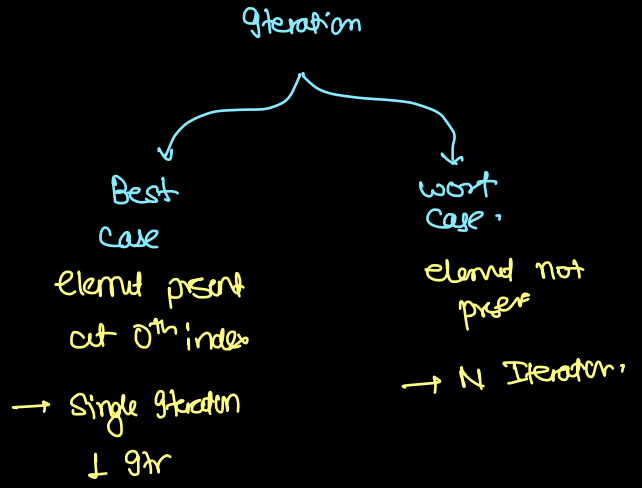 Iteration
Best
case
element present
at 0th index
→ Single Iteration
1 Itr
worst
case.
element not
present
→ N Iteration.